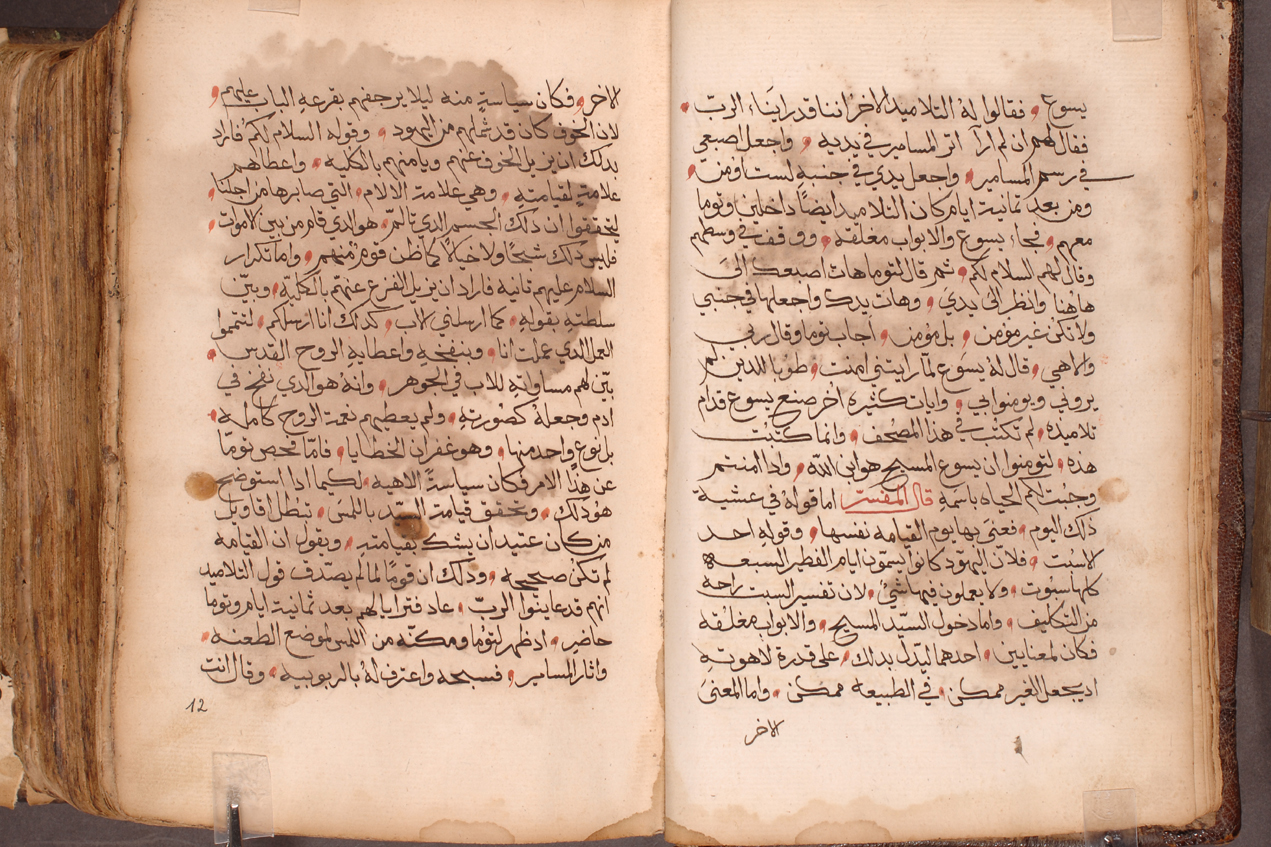 يسوع، فقالوا له التلاميد الاخر اننا قد راينا الربّ،
فقال لهم ان لم ارآ اثر المسامير في يديه، واجعل اصبعي
في رسم المسامير، واجعل يدي في جنبه لست اومن،
ومن بعد تمانية ايام كان التلاميد ايضًا داخلين وتوما
معهم، فجاء يسوع والابواب مغلقه، ووقف في وسطهم
وقال لهم السلام لكم، تم قال لتوما هات اصبعك الى
هاهنا وانظر الى يديَ، وهات يدك واجعلها في جنبي
ولا تكن غير مومن، بل مومن، اجاب توما وقال ربي
والاهي، قال له يسوع لما رايتني امنت، طوبا للدين لم
يروني ويومنوا بي، وايات كتيره اُخر صنع يسوع قدام
تلاميده، لم تكتب في هدا المصحف، وانما كتبت
هده، لتومنوا ان يسوع المسيح هو ابن الله، وادا امنتم
وجبت لكم الحياه باسمه قال المفسر اما قوله في عشية
دلك اليوم، فعنى بها يوم القيامه نفسها، وقوله احد
السبت، فلان اليهود كانوا يسمون ايام الفطير السبعه
كلها سبوت، ولا يعملون فيها شي، لان تفسير السبت راحه
من التكليف، واما دخول السيّد المسيح، والابواب مغلقه
فكان لمعنايين، احدهما ليدل بدلك، على قدرة لاهوته
اد يجعل الغير ممكن، في الطبيعه ممكن، واما المعنى
الاخر
الاخر، فكان سياسةٍ منه ليلا يرجفهم بقرعهِ الباب عليهم،
لان الخوف كان قد شملهم من اليهود، وقوله السلام لكم فاراد
بدلك ان يزيل الخوف عنهم ويامنهم بالكليه، واعطاهم
علامةٍ لقيامته، وهي علامة الالام، التي صابرها من اجلنا،
ليتحققوا ان دلك الجسم الدي تالم، هو الدي قام من بين الاموات،
فليس دلك شبحًا ولا خيالًا كما ظن قوم منهم، واما تكرار
السلام عليهم تانية فاراد ان يزيل الفزع عنهم بالكلية، وبيّن
سلطته بقوله، كما ارسلني الاب، كدلك انا ارسلكم، لتتمموا
العمل الدي عملت انا، وبنفخه واعطايه الروح القدس،
بيّن لهم مساواته للاب في الجوهر، وانه هو الدي نفخ في
ادم وجعله كصورته، ولم يعطهم نعمة الروح كامله،
بل نوع واحد منها، وهو غفران الخطايا، فامّا فحص توما
عن هدا الامر فكان سياسةً الاهيه، لكيما ادا استوضح
هو دلك، وتحقق قيامة السيّد باللمس، تبطل اقاويل
من كان عتيد ان يشك بقيامته، ويقول ان القيامه
لم تكن صحيحه، ودلك ان قومًا لما لم يصدق قول التلاميد
انهم قد عاينوا الربّ، عاد فترايا لهم بعد تمانية ايام وتوما
حاضر، اد ظهر لتوما ومكنه من اللمس لموضع الطعنه،
واتار المسامير، فسبحه واعترف له بالربوبيه، وقال انت
12